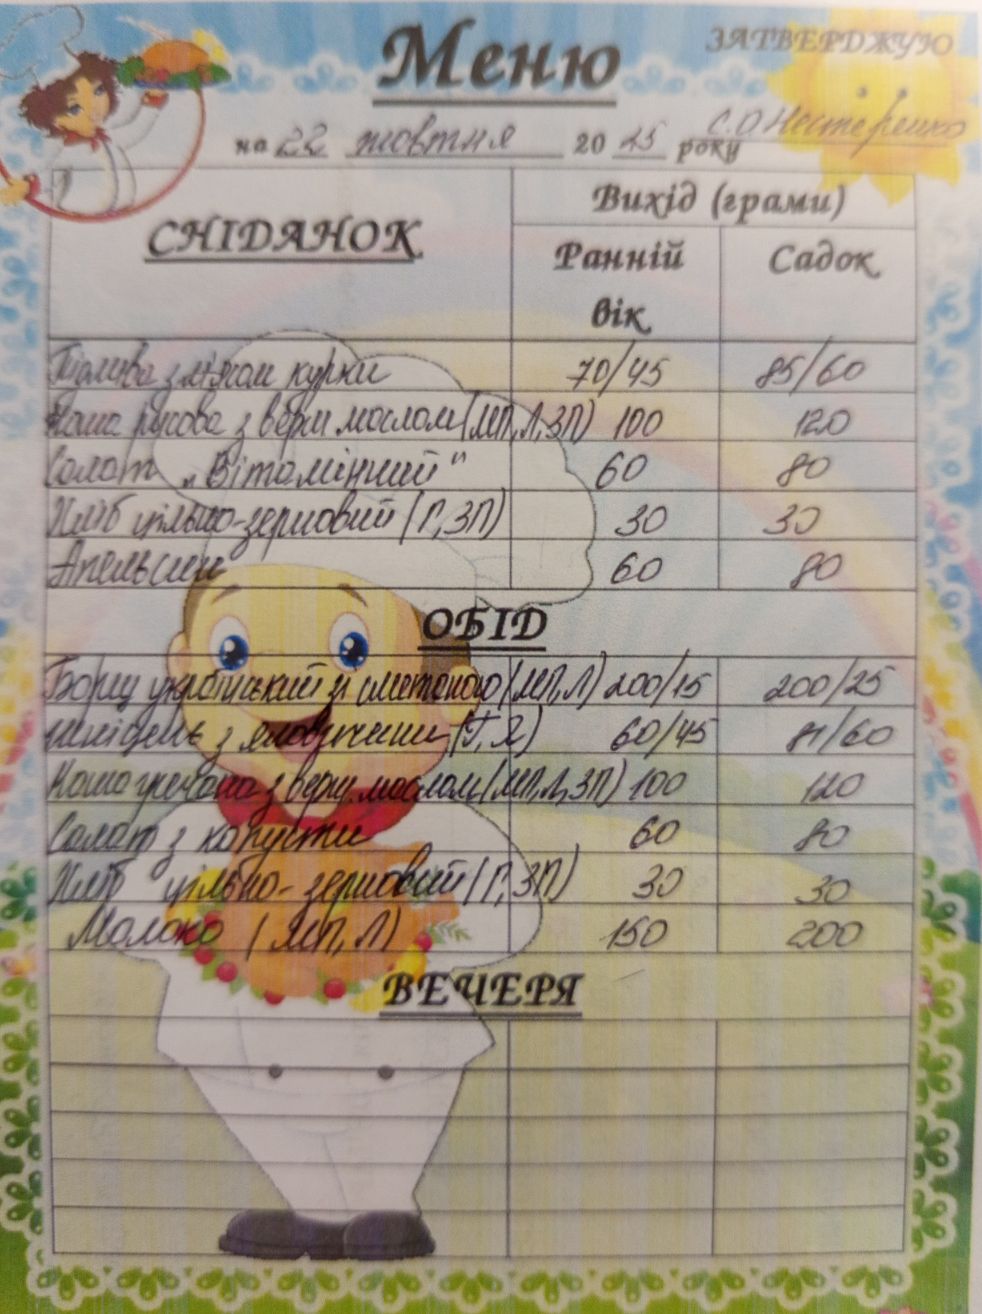 Меню
ЗАТВЕРДЖУЮ
на 22 жовтня 2025 року С.О Нестеренко
СНІДАНОК
Вихід (грами)
Ранній вік
Садок
Підлива з м'ясом курки 70/45 85/60
Каша рисова з верш маслом (МП,Л,ЗП) 100 120
Салат „Вітамінний" 60 80
Хліб цільно-зерновий (Г,ЗП) 30 30
Апельсин 60 80
ОБІД
Борщ український зі сметаною (МП,Л) 200/15 200/25
з яловичини (Г, Я) 60/45 81/60
Каша гречана з верш. маслом (МП,Л,ЗП) 100 120
Салат з капусти 60 80
Хліб цільно-зерновий (Г,ЗП) 30 30
Молоко (МП,Л) 150 200
ВЕЧЕРЯ